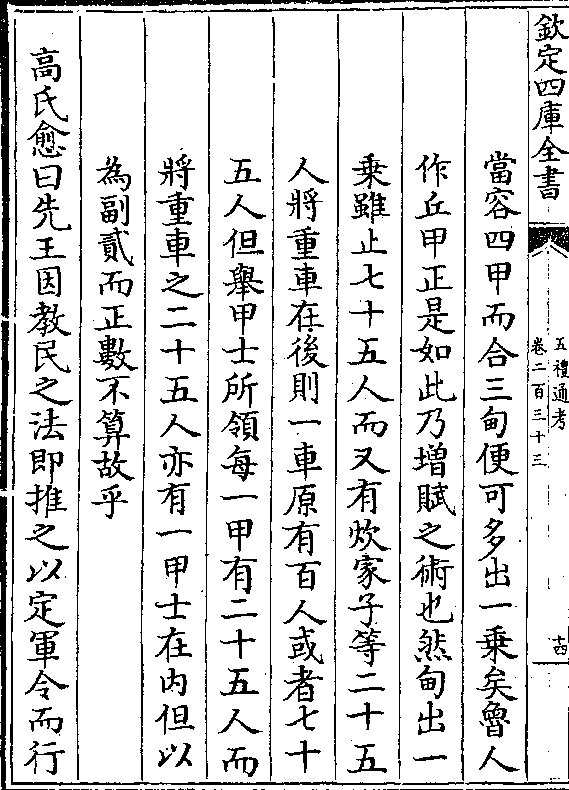 欽定四庫全書
五禮通考
卷二百三十三
十四
當容四甲而合三甸便可多出一乗矣魯人
作丘甲正是如此乃增賦之術也然甸出一
乗雖止七十五人而又有炊家子等二十五
人將重車在後則一車原有百人或者七十
五人但舉甲士所領每一甲有二十五人而
將重車之二十五人亦有一甲士在内但以
為副貳而正數不算故乎
高氏愈曰先王因教民之法即推之以定軍令而行